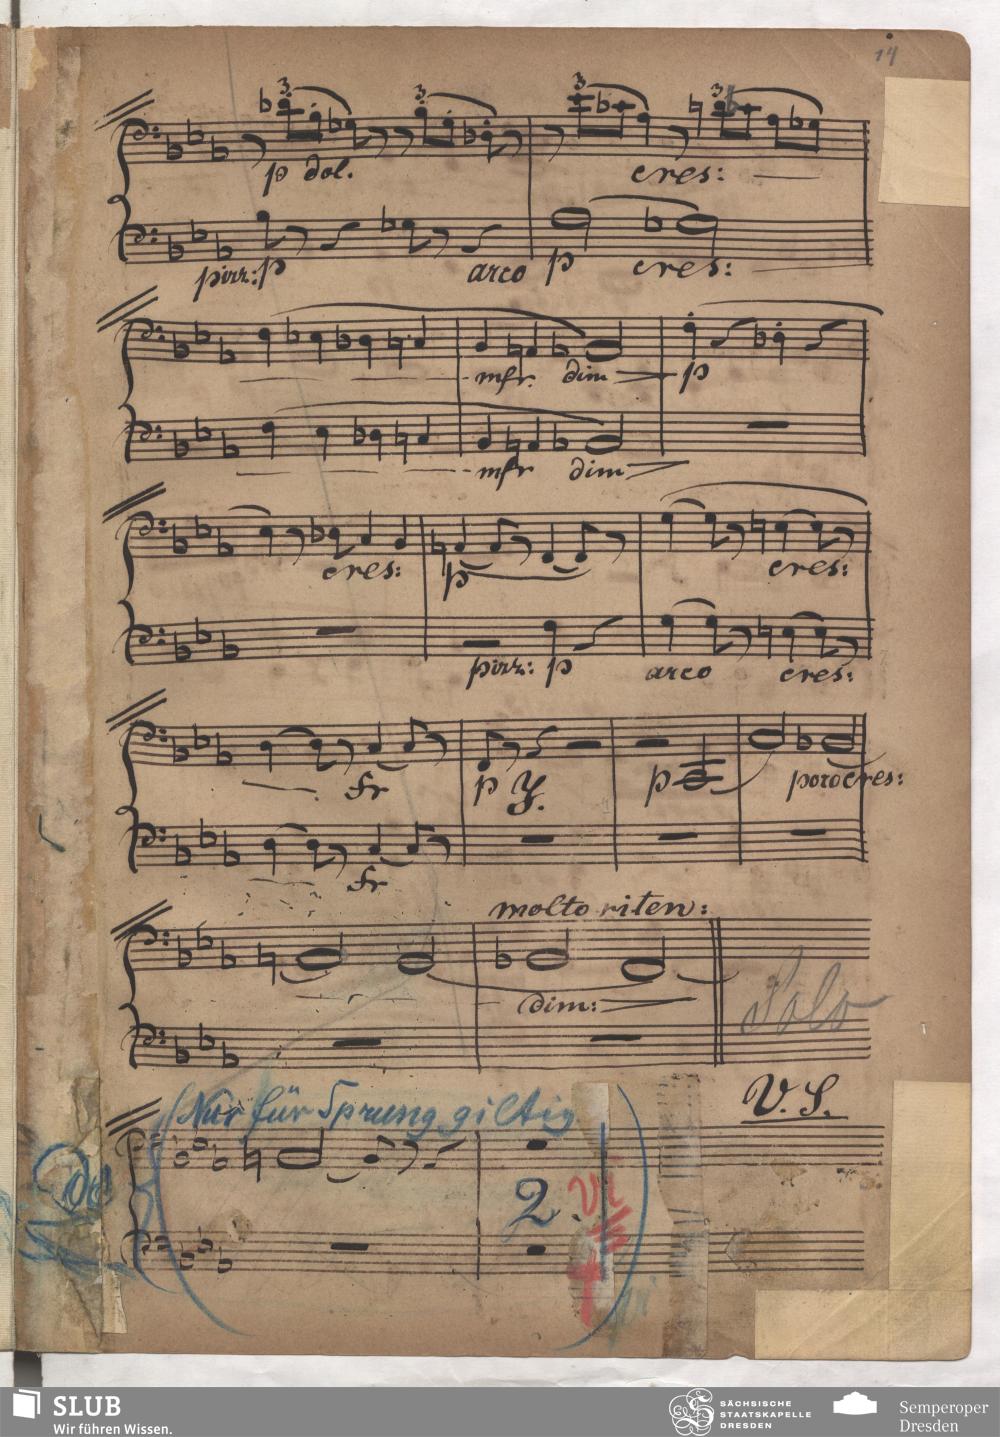 14
3 3 3 3
p dol. cres:
pizz: p arco p cres:
mfr. dim p
mfr dim
cres: p cres:
pizz: p arco cres:
fr p p poco cres:
fr
molto riten:
dim:
Solo
V. S.
Nur für Sprung giltig
2
SLUB
Wir führen Wissen.
SÄCHSISCHE
STAATSKAPELLE
DRESDEN
Semperoper
Dresden